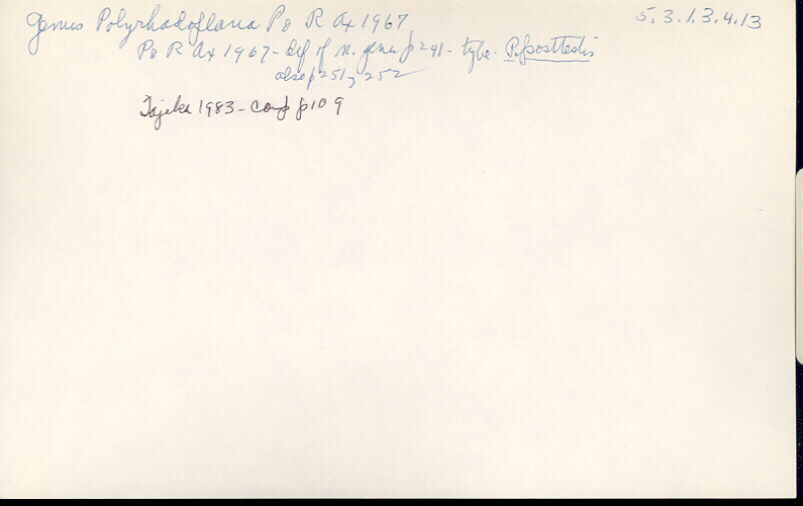 genus Polyrhadoplana Po R Ax 1967 5.3.1.3.4.13
Po R Ax 1967 - def of n. genus p 291 - type. P. posttestis
also p 251, 252
Tajika 1983 - comp p 109